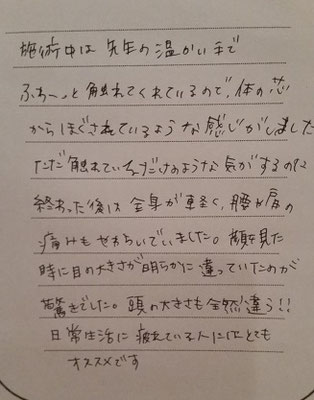 施術中は先生の温かい手で
ふわ〜っと触れてくれているので、体の芯
からほぐされているような感じがしました
ただ触れているだけのような気がするのに
終わった後は全身が軽く、腰や肩の
痛みもやわらいでいました。顔を見た
時に目の大きさが明らかに違っていたのが
驚きでした。頭の大きさも全然違う!!
日常生活に疲れている人にはとても
オススメです